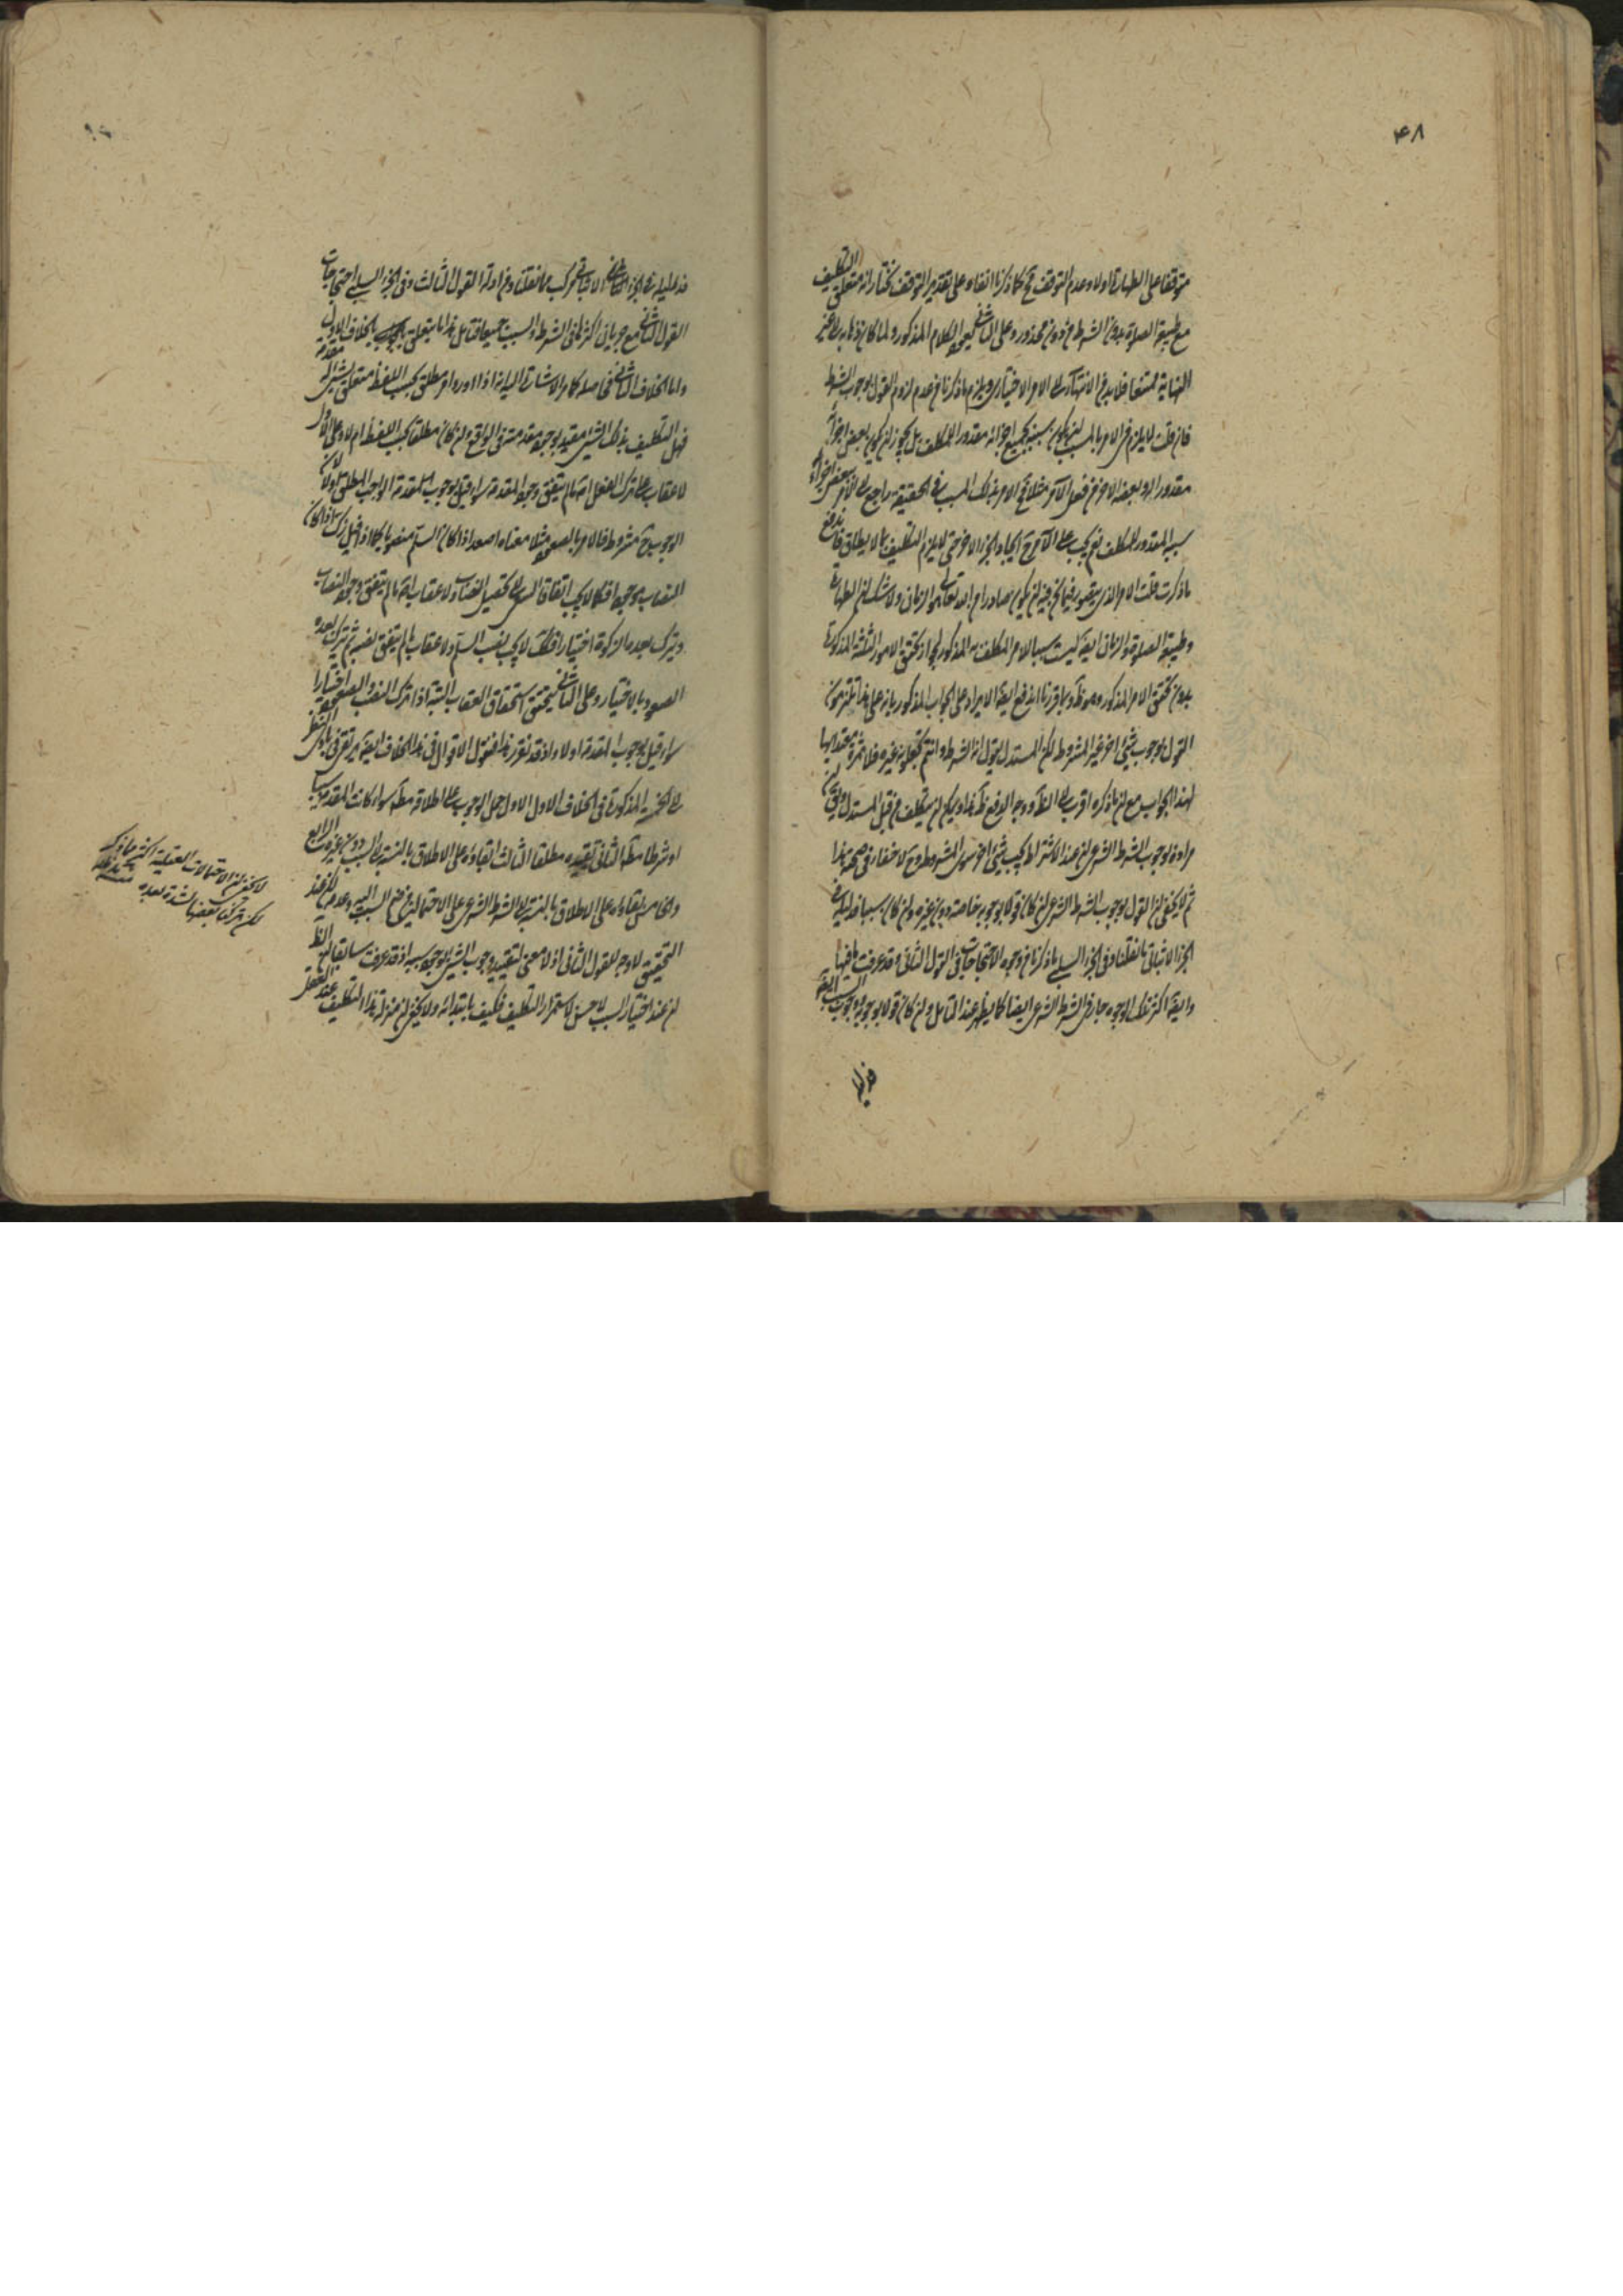 ۴۸
متوقفا على الطهارة اولا وعدم التوقف ح كما ذكرنا انفا وعلى تقدير التوقف نختار انه متعلق التكليف
مع طبيعة الصلوة بدون الشرط من دون محذور وعلى الثاني الكلام المذكور ولما كان ذهابه الى غير
النهاية ممتنعا فلا بد من الانتهاء الى الامر الاختياري ويلزم ما ذكرنا من عدم لزوم القول بوجوب الشرط
فان قلت لا يلزم في الامر بالمسبب ان يكون سببه بجميع اجزائه مقدورا للمكلف بل يجوز ان يكون بعض اجزائه
مقدورا له وبعضه الاخر من فعل الآمر مثلا ح الامر بذلك المسبب في الحقيقة راجع الى الامر ببعض اجزاء
سببه المقدور للمكلف نعم يجب على الآمر ح ايجاد الجزء الاخر حتى لا يلزم التكليف بما لا يطاق فاندفع
ما ذكرت قلت الامر الذي يتصور فيما نحن فيه ان يكون صادرا من الله تعالى هو الزمان ولا شك ان الطهارة
وطبيعة الصلوة والزمان ايضا ليست سببا لامر المكلف به المذكور لجواز تحقق الامور الثلثة المذكورة
بدون تحقق الامر المذكور وهو ظ وبما قررنا اندفع ايضا الايراد على الجواب المذكور بانه على هذا تلتزمون
القول بوجوب شيء اخر غير المشروط لكن المستدل يقول انه الشرط وانتم تجعلونه غيره فلا ثمرة يعتد بها
لهذا الجواب مع ان ما ذكره اقرب الى الظ ووجه الدفع ظ هذا ويمكن ان يتكلف من قبل المستدل ان
مراده بوجوب الشرط الشرعي ان عند الاشتراط يجب شيء اخر سوى المشروط وح لا خفاء في صحته هذا
ثم لا يخفى ان القول بوجوب الشرط الشرعي ان كان قولا بوجوبه خاصة دون غيره وان كان سببا فدليله في
الجزء الاثباتي ما نقلنا وفي الجزء السلبي ما ذكرنا من وجوه الاحتجاجات في القول الثاني وقد عرفت ما فيها
وايضا اكثر تلك الوجوه جار في الشرط الشرعي ايضا كما يظهر عند التامل وان كان قولا بوجوبه ووجوب السبب ايضا
فدليله
فدليله في الجزء الاثباتي مركب مما نقلنا ومن ادلة القول الثالث وفي الجزء السلبي احتجاجات
القول الثاني مع جريان اكثرها في الشرط والسبب جميعا فتامل هذا ما يتعلق بالخلاف الاول
واما الخلاف الثاني فحاصله كما مر الاشارة اليه انه اذا ورد امر مطلق بحسب اللفظ متعلق بشيء له مقدمة
فهل التكليف بذلك الشيء مقيد بوجود مقدمته في الواقع وان كان مطلقا بحسب اللفظ ام لا وعلى الاول
لا عقاب على ترك الفعل اصلا ما لم يتفق وجود المقدمة سواء قيل بوجوب المقدمة الواجب المطلق اولا لان
الوجوب ح مشروط فالامر بالصعود مثلا معناه اصعد اذا كان السلم منصوبا فكما اذا قيل زك اذا كان
النصاب موجودا فكما لا يجب اتفاقا السعي الى تحصيل النصاب ولا عقاب اصلا ما لم يتفق وجود النصاب
ويترك بعده الزكوة اختيارا فكذلك لا يجب نصب السلم ولا عقاب ما لم يتفق نصبه ثم يترك بعده
الصعود بالاختيار وعلى الثاني يتحقق استحقاق العقاب البتة اذا ترك النصب والصعود اختيارا
سواء قيل بوجوب المقدمة اولا واذ قد تقرر هذا فنقول الاقوال في هذا الخلاف ايضا يرتقي في بادي النظر
الى الخمسة المذكورة في الخلاف الاول الاول حمل الوجوب على اطلاقه مط سواء كانت المقدمة سببا
او شرطا مط الثاني تقييده مطلقا الثالث ابقاؤه على الاطلاق بالنسبة الى السبب دون غيره الرابع
والخامس ابقاؤه على الاطلاق بالنسبة الى الشرط الشرعي على الاحتمالين من ضم السبب اليه وعدمه لكن عند
التحقيق لا وجه للقول الثاني اذ لا معنى لتقييد وجوب الشيء بوجود سببه اذ قد عرفت سابقا ان الظ
ان عند اختيار السبب لا حسن لاستمرار التكليف فكيف بابتدائه ولا يخفى ان منزلة هذا التكليف عند العقل
لا يخفى ان الاحتمالات العقلية اكثر مما ذكر
لكن تركنا بعضها لشدة بعده
منه